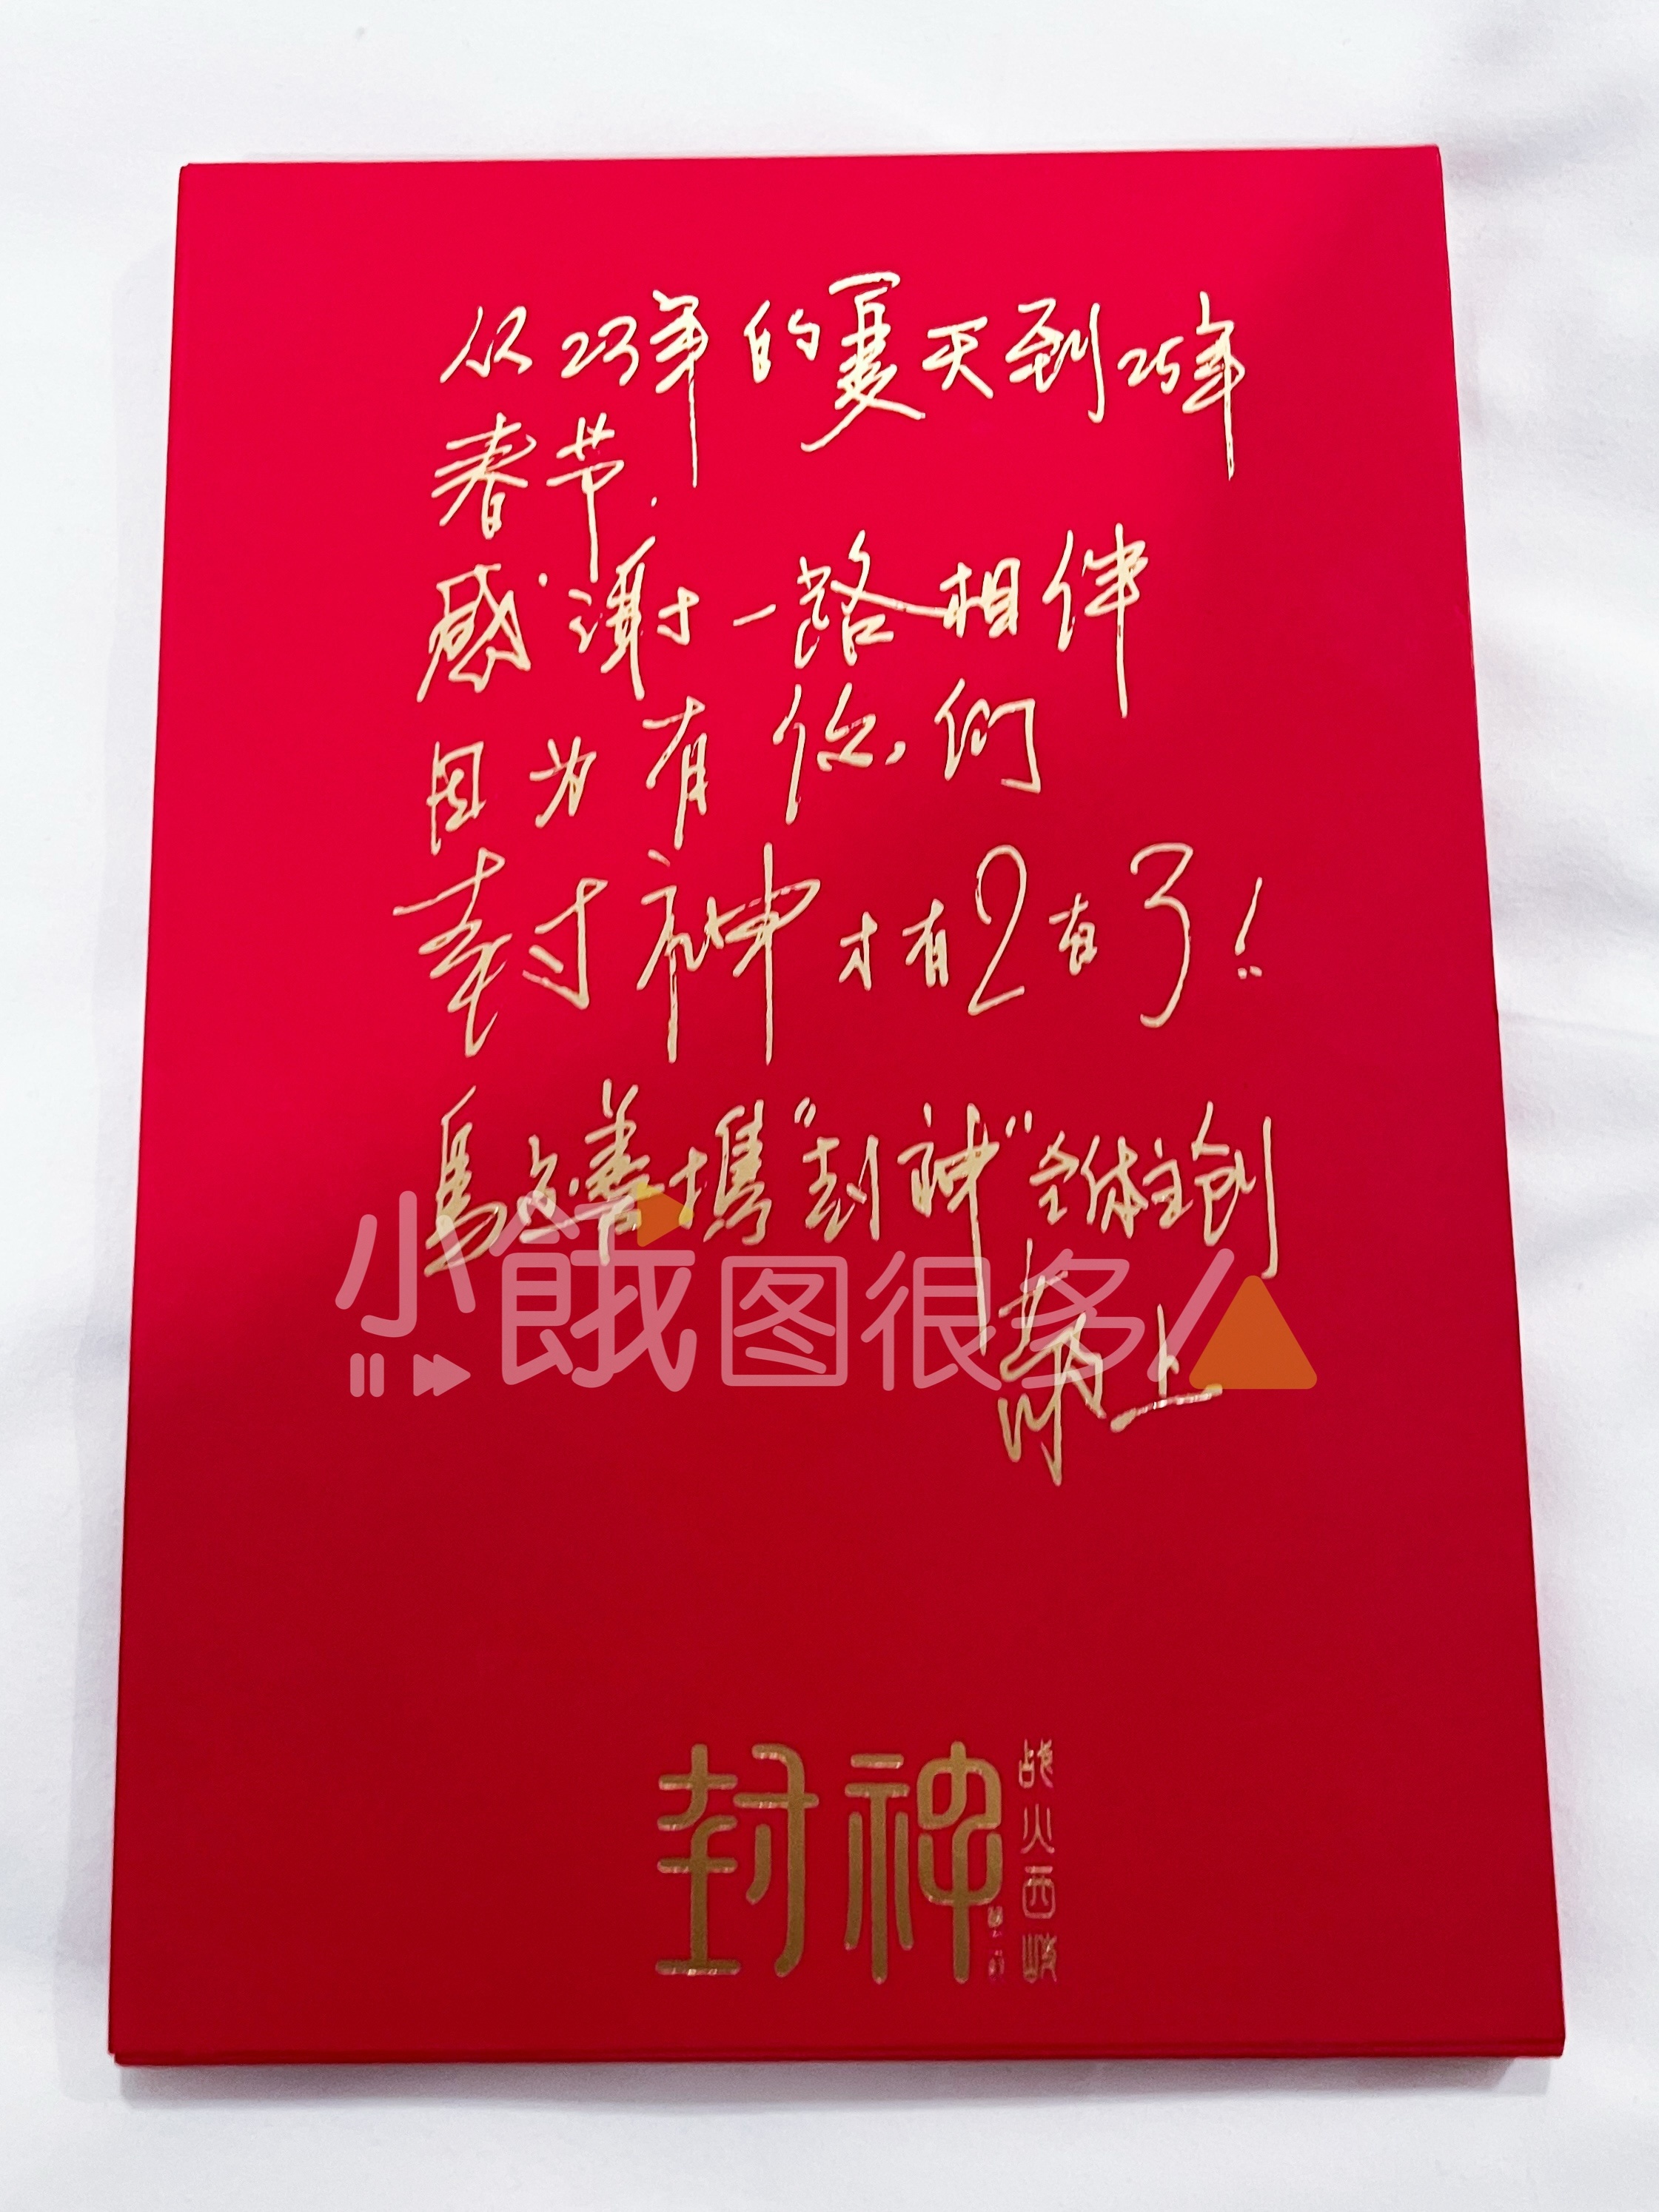 从23年的夏天到25年
春节.
感谢一路相伴
因为有你们
封神才有2有3!
烏尔善携“封神”全体主创
敬上
小餓图很多
封神
战火西岐